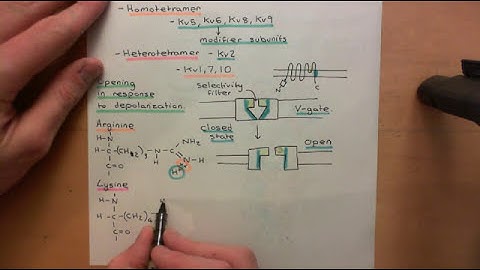 - Homotetramer
- Kv5, Kv6, Kv8, Kv9
modifier subunits
- Heterotetramer - Kv2
- Kv1, 7, 10
N
C
Opening
in response
to depolarization.
selectivity
filter
V-gate.
closed
state
Open
Arginine
H-N
H-C-(CH2)3-N-C
H
NH2
N-H
H
C=O
Lysine
H-N
H-C-(CH2)4
C=O